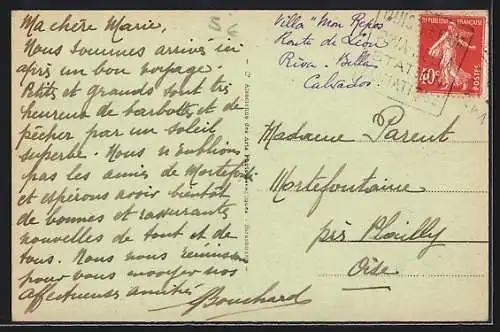 Ma chère Marie,
Nous sommes arrivés ici
après un bon voyage.
Petits et grands sont très
heureux de barboter et de
pêcher par un soleil
superbe. Nous n'oublions
pas les amis de Mortefont.
et espérons avoir bientôt
de bonnes et rassurantes
nouvelles de tout et de
tous. Nous nous réunissons
pour vous envoyer nos
affectueuses amitiés
Bouchard
Villa "Mon Repos
Route de Lion
Riva-Bella
Calvados
RÉPUBLIQUE FRANÇAISE
40c
POSTES
Madame Parent
Mortefontaine
près Plailly
Oise